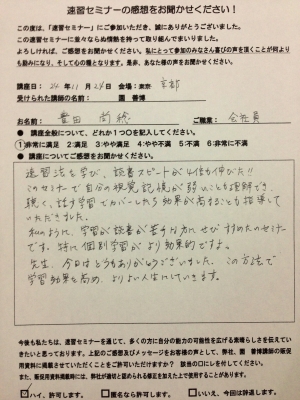 速習セミナーの感想をお聞かせください！
この度は、「速習セミナー」にご参加いただき、誠にありがとうございました。
この速習セミナーに並々ならぬ情熱を持って取り組んでまいりました。
よろしければ、ご感想をお聞かせください。私にとって参加のみなさん喜びの声を頂くことが何よりも
励みになり、そして心の糧となります。是非、あなた様のお声をお聞かせください。
講座日: 24年 11月 24日 会場: 東京 京都
受けられた講師の名前: 園 善博
お名前: 豊田 ご職業: 会社員
● 講座全般について、どれか１つ○を記入してください。
①非常に満足 2満足 3:やや満足 4:やや不満 5不満 6:非常に不満
● 講座についてご感想をお聞かせください。
速習法を学び、読書スピードが4倍も伸びた!!
このセミナーで自分の視覚記憶が弱いことも理解でき、
聴く、話す学習でカバーしたら効果が高まることも指導して
いただきました。
私のように、学習が読書が苦手な方にぜひすすめたいセミナー
です。特に個別学習がより効果的ですよ。
先生、今日はどうもありがとうございました。この方法で
学習効果を高め、よりよい人生にしていきます。
今後も私たちは、速習セミナーを通じて、多くの方に自分の能力の可能性を広げる素晴らしさを伝えてい
きたいと思っております。上記のご感想及びメッセージをお客様の声として、弊社、園 善博講師の販促
用資料に掲載させていただくことをご許可いただけますか？ 該当の□にレを付してください。
また、販促用資料掲載時には、弊社が適切と認められる修正を加えた上で使用することがあります。
☑ハイ、許可します。 □匿名なら許可します。 □いいえ、今回は辞退します。